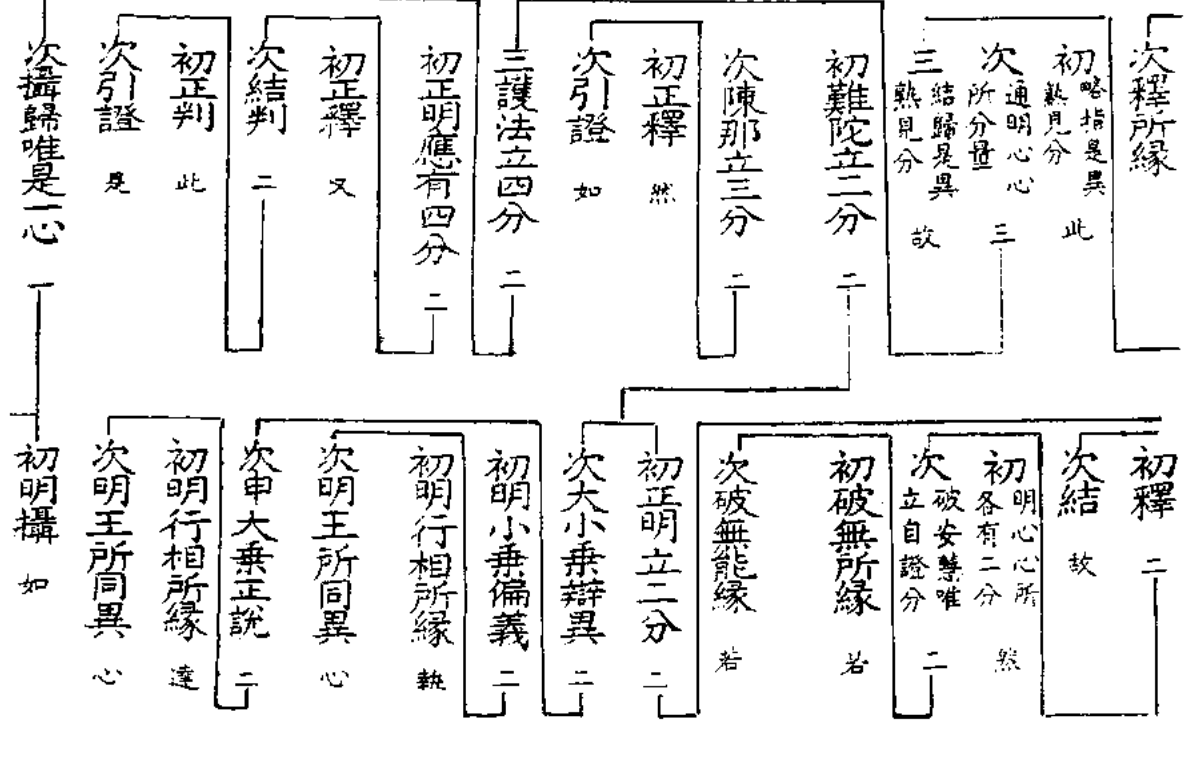 次釋所緣
初略指是異熟見分 此
次通明心心所分量 三
三結歸是異熟見分 故
初難陀立二分 二
次陳那立三分 二
初正釋 然
次引證 如
三護法立四分 二
初正明應有四分 二
初正釋 又
次結判 二
初正判 此
次引證 是
次攝歸唯是一心 一
初釋 二
次結 故
初明心心所各有二分 然
次破安慧唯立自證分 二
初破無所緣 若
次破無能緣 若
初正明立二分 二
次大小乗辯異 二
初明小乗偏義 二
初明行相所緣 執
次明王所同異 心
次申大乗正説 二
初明行相所緣 達
次明王所同異 心
初明攝 如